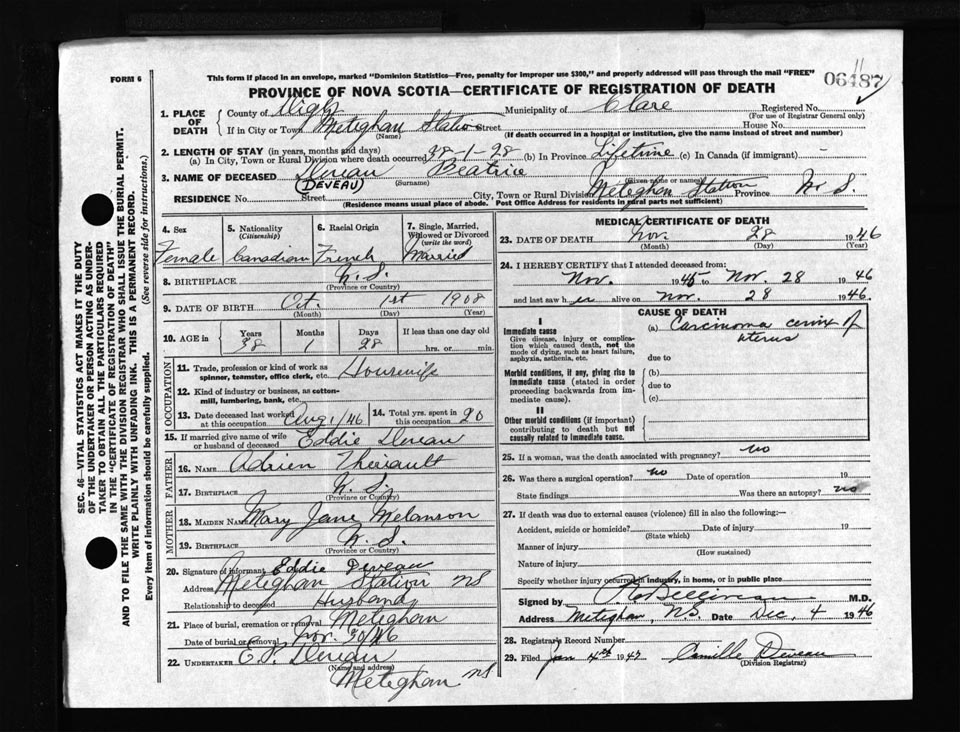 FORM 6
This form if placed in an envelope, marked "Dominion Statistics—Free, penalty for improper use $300," and properly addressed will pass through the mail "FREE"
06487
11
PROVINCE OF NOVA SCOTIA—CERTIFICATE OF REGISTRATION OF DEATH
1. PLACE OF DEATH County of Digby Municipality of Clare Registered No.
(For use of Registrar General only)
If in City or Town Meteghan Station Street House No.
(Name) (If death occurred in a hospital or institution, give the name instead of street and number)
2. LENGTH OF STAY (in years, months and days)
(a) In City, Town or Rural Division where death occurred 38-1-28 (b) In Province Lifetime (c) In Canada (if immigrant) —
3. NAME OF DECEASED Deveau Beatrice
(DEVEAU) (Surname) (Given name or names)
RESIDENCE No. Street City, Town or Rural Division Meteghan Station Province N. S.
(Residence means usual place of abode. Post Office Address for residents in rural parts not sufficient)
4. Sex 5. Nationality (Citizenship) 6. Racial Origin 7. Single, Married, Widowed or Divorced (write the word)
Female Canadian French Married
8. BIRTHPLACE N. S.
(Province or Country)
9. DATE OF BIRTH Oct. 1st 1908
(Month) (Day) (Year)
10. AGE in Years Months Days If less than one day old
38 1 28 hrs. or min.
OCCUPATION
11. Trade, profession or kind of work as spinner, teamster, office clerk, etc. Housewife
12. Kind of industry or business, as cotton-mill, lumbering, bank, etc.
13. Date deceased last worked at this occupation Aug 1/46 14. Total yrs. spent in this occupation 20
15. If married give name of wife or husband of deceased Eddie Deveau
FATHER
16. NAME Adrien Theriault
17. BIRTHPLACE N. S.
(Province or Country)
MOTHER
18. MAIDEN NAME Mary Jane Melanson
19. BIRTHPLACE N. S.
(Province or Country)
20. Signature of informant Eddie Deveau
Address Meteghan Station NS
Relationship to deceased Husband
21. Place of burial, cremation or removal Meteghan
Date of burial or removal Nov. 30/46
22. UNDERTAKER E. P. Deveau
(Name and address)
Meteghan NS
MEDICAL CERTIFICATE OF DEATH
23. DATE OF DEATH Nov. 28 1946
(Month) (Day) (Year)
24. I HEREBY CERTIFY that I attended deceased from:
Nov. 1945 to Nov. 28 1946
and last saw her alive on Nov. 28 1946.
CAUSE OF DEATH
I
Immediate cause
Give disease, injury or complication which caused death, not the mode of dying, such as heart failure, asphyxia, asthenia, etc.
(a) Carcinoma cervix of uterus
due to
Morbid conditions, if any, giving rise to immediate cause (stated in order proceeding backwards from immediate cause).
(b)
due to
(c)
II
Other morbid conditions (if important) contributing to death but not causally related to immediate cause.
25. If a woman, was the death associated with pregnancy? no
26. Was there a surgical operation? no Date of operation 19
State findings Was there an autopsy? no
27. If death was due to external causes (violence) fill in also the following:—
Accident, suicide or homicide? Date of injury 19
(State which)
Manner of injury
(How sustained)
Nature of injury
Specify whether injury occurred in industry, in home, or in public place
Signed by M.D.
Address Meteghan, N.S. Date Dec. 4 1946
28. Registrar's Record Number
29. Filed Jan 4th 1947 Camille Deveau
(Division Registrar)
SEC. 46—VITAL STATISTICS ACT MAKES IT THE DUTY
OF THE UNDERTAKER OR PERSON ACTING AS UNDER-
TAKER TO OBTAIN ALL THE PARTICULARS REQUIRED
IN THE "CERTIFICATE OF REGISTRATION OF DEATH"
AND TO FILE THE SAME WITH THE DIVISION REGISTRAR WHO SHALL ISSUE THE BURIAL PERMIT.
WRITE PLAINLY WITH UNFADING INK. THIS IS A PERMANENT RECORD.
Every item of information should be carefully supplied. (See reverse side for instructions.)